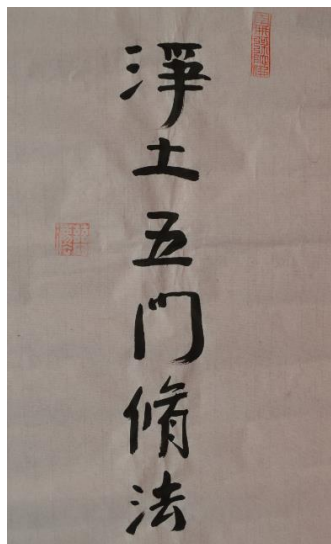 淨土五門脩法